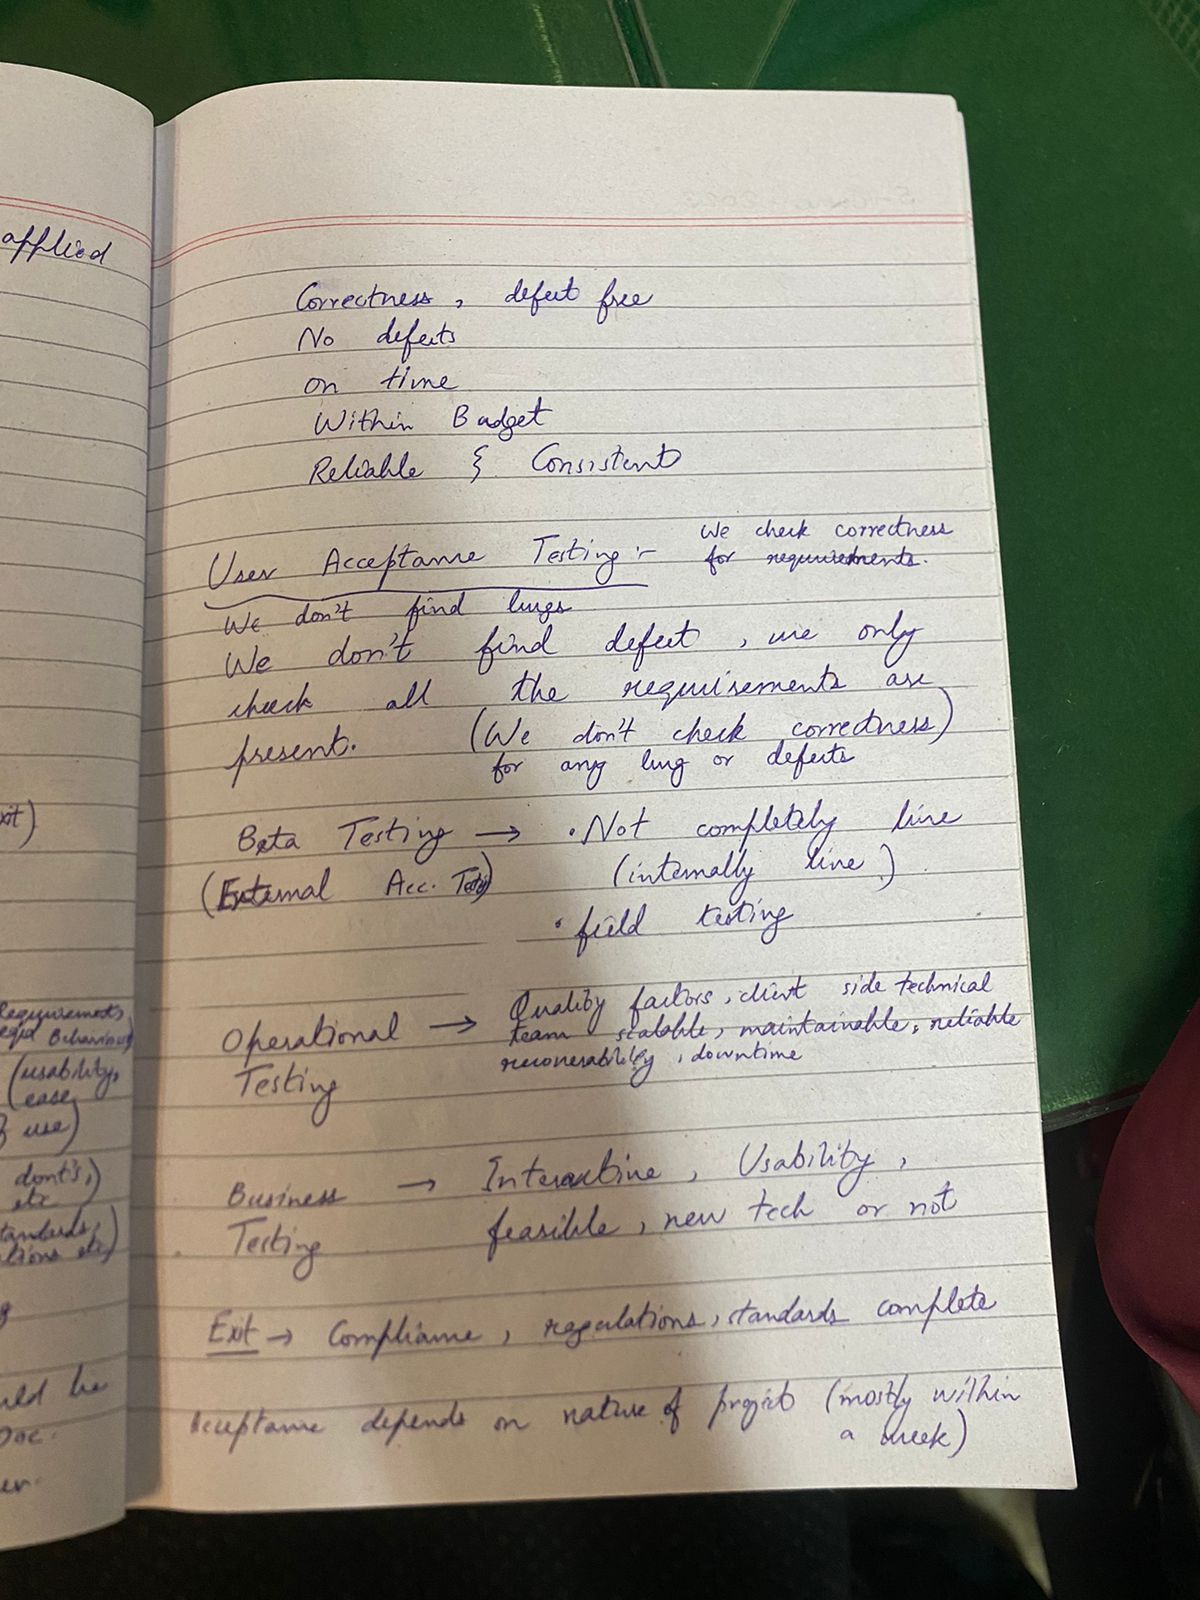 applied
xit)
Requirements,
Behaviour
(usability,
ease
of use)
dont's,)
etc
standards,
etc)
be
Doc.
Correctness, defect free
No defects
on time
Within Budget
Reliable & Consistent
User Acceptance Testing :- We check correctness
for requirements.
We don't find bugs
We don't find defect, we only
check all the requirements are
present. (We don't check correctness)
for any bug or defects
Beta Testing → • Not completely live
(External Acc. Test) (internally live)
• field testing
Operational → Quality factors, client side technical
Testing team scalable, maintainable, reliable
recoverability, downtime
Business → Interactive, Usability,
Testing feasible, new tech or not
Exit → Compliance, regulations, standards complete
Acceptance depends on nature of project (mostly within
a week)